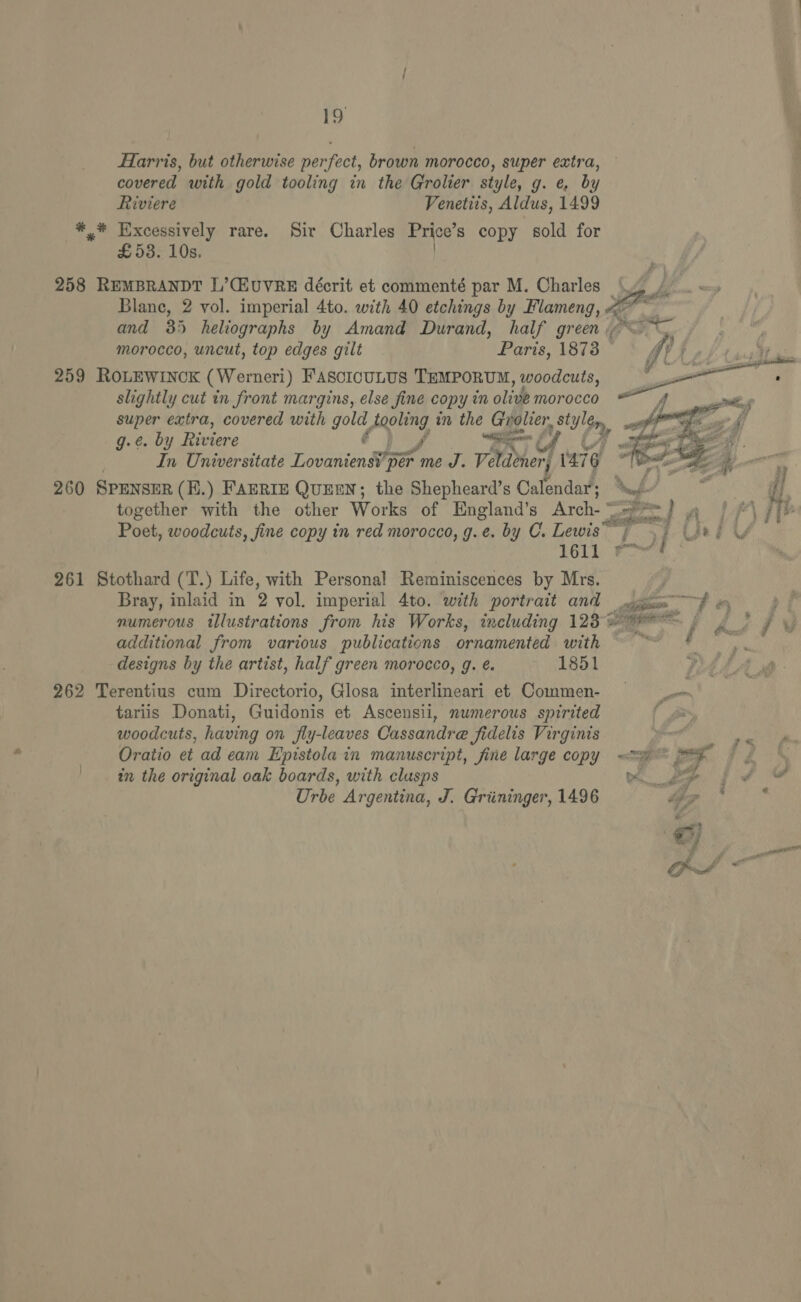 19
Harris, but otherwise perfect, brown morocco, super extra,
covered with gold tooling in the Grolier style, g. e, by
Riviere Venetiis, Aldus, 1499
*** Excessively rare. Sir Charles Price's copy sold for
£53. 10s.
258 REMBRANDT L'ŒUVRE décrit et commenté par M. Charles
Blanc, 2 vol. imperial 4to. with 40 etchings by Flameng,
and 35 heliographs by Amand Durand, half green
morocco, uncut, top edges gilt Paris, 1873
259 ROLEWINCK (Werneri) FASCICULUS TEMPORUM, woodcuts,
slightly cut in front margins, else fine copy in olive morocco
super extra, covered with gold tooling in the Grolier style,
g. e. by Riviere
In Universitate Lovaniensi per me J. Veldener, 1476
260 SPENSER (E.) FAERIE QUEEN; the Shepheard's Calendar;
together with the other Works of England's Arch-
Poet, woodcuts, fine copy in red morocco, g. e. by C. Lewis
1611
261 Stothard (T.) Life, with Personal Reminiscences by Mrs.
Bray, inlaid in 2 vol. imperial 4to. with portrait and
numerous illustrations from his Works, including 123
additional from various publications ornamented with
designs by the artist, half green morocco, g. e. 1851
262 Terentius cum Directorio, Glosa interlineari et Commen-
tariis Donati, Guidonis et Ascensii, numerous spirited
woodcuts, having on fly-leaves Cassandræ fidelis Virginis
Oratio et ad eam Epistola in manuscript, fine large copy
in the original oak boards, with clasps
Urbe Argentina, J. Grüninger, 1496